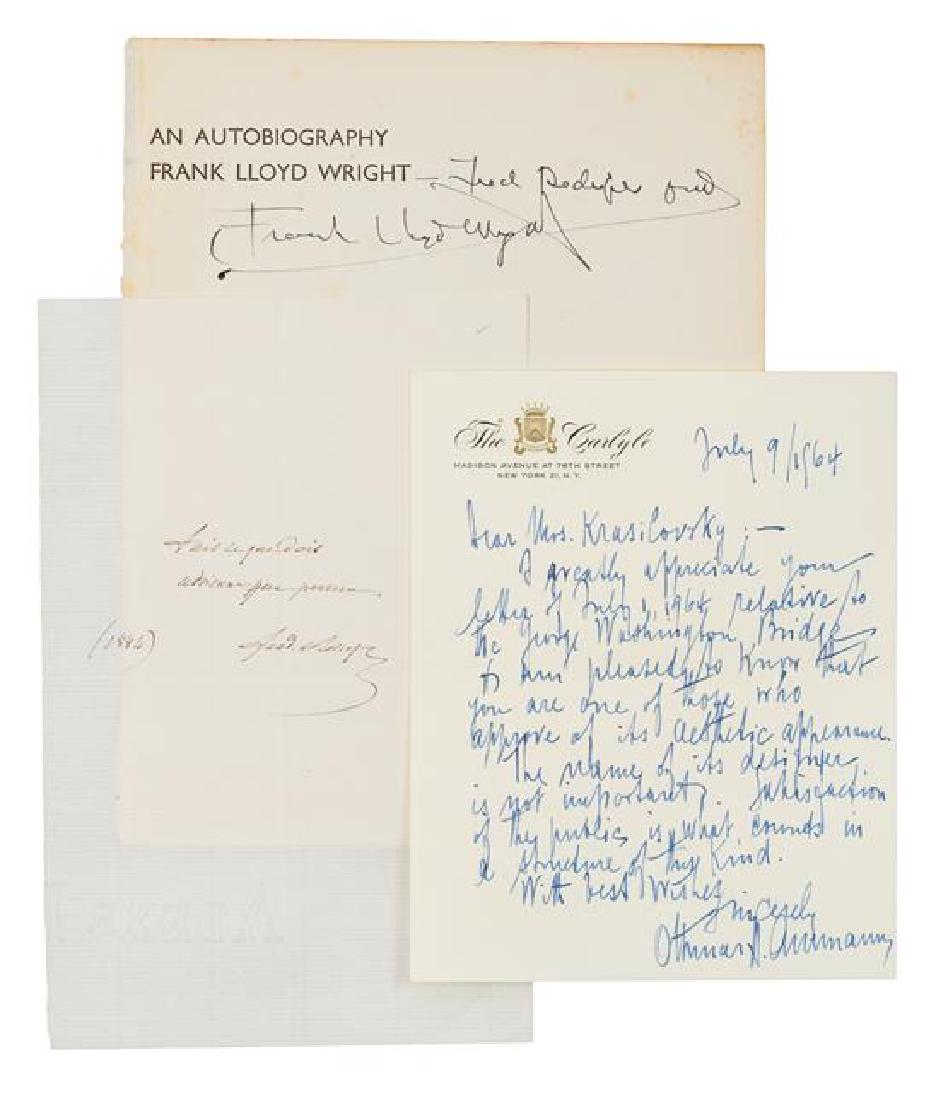 AN AUTOBIOGRAPHY
FRANK LLOYD WRIGHT
Frank Lloyd Wright
(1886)
The Carlyle
MADISON AVENUE AT 76TH STREET
NEW YORK 21, N.Y.
July 9/1964
Dear Mrs. Krasilovsky :—
I greatly appreciate your
letter of July 1, 1964, relative to
the George Washington Bridge
I am pleased to know that
you are one of those who
approve of its aesthetic appearance.
The name of its designer
is not important. Satisfaction
of the public is what counts in
a structure of this kind.
With best wishes
Sincerely
Othmar H. Ammann